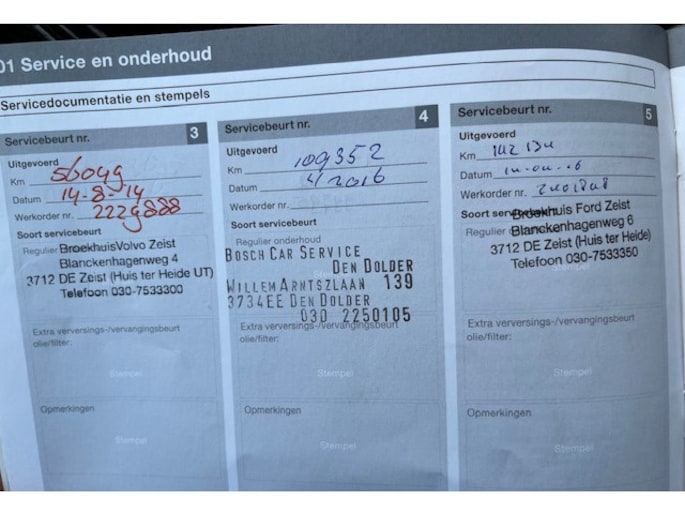 01 Service en onderhoud
Servicedocumentatie en stempels
Servicebeurt nr. 3
Uitgevoerd
Km 56049
Datum 14-8-14
Werkorder nr. 2229888
Soort servicebeurt
Regulier BroekhuisVolvo Zeist
Blanckenhagenweg 4
3712 DE Zeist (Huis ter Heide UT)
Telefoon 030-7533300
Extra verversings-/vervangingsbeurt
olie/filter:
Stempel
Opmerkingen
Stempel
Servicebeurt nr. 4
Uitgevoerd
Km 109352
Datum 4/2016
Werkorder nr.
Soort servicebeurt
Regulier onderhoud
BOSCH CAR SERVICE
DEN DOLDER
WILLEM ARNTSZLAAN 139
3734EE DEN DOLDER
030 2250105
Extra verversings-/vervangingsbeurt
olie/filter:
Stempel
Opmerkingen
Stempel
Servicebeurt nr. 5
Uitgevoerd
Km
Datum
Werkorder nr.
Soort servicebeurt
Regulier
Broekhuis Ford Zeist
Blanckenhagenweg 6
3712 DE Zeist (Huis ter Heide)
Telefoon 030-7533350
Extra verversings-/vervangingsbeurt
olie/filter:
Stempel
Opmerkingen
Stempel